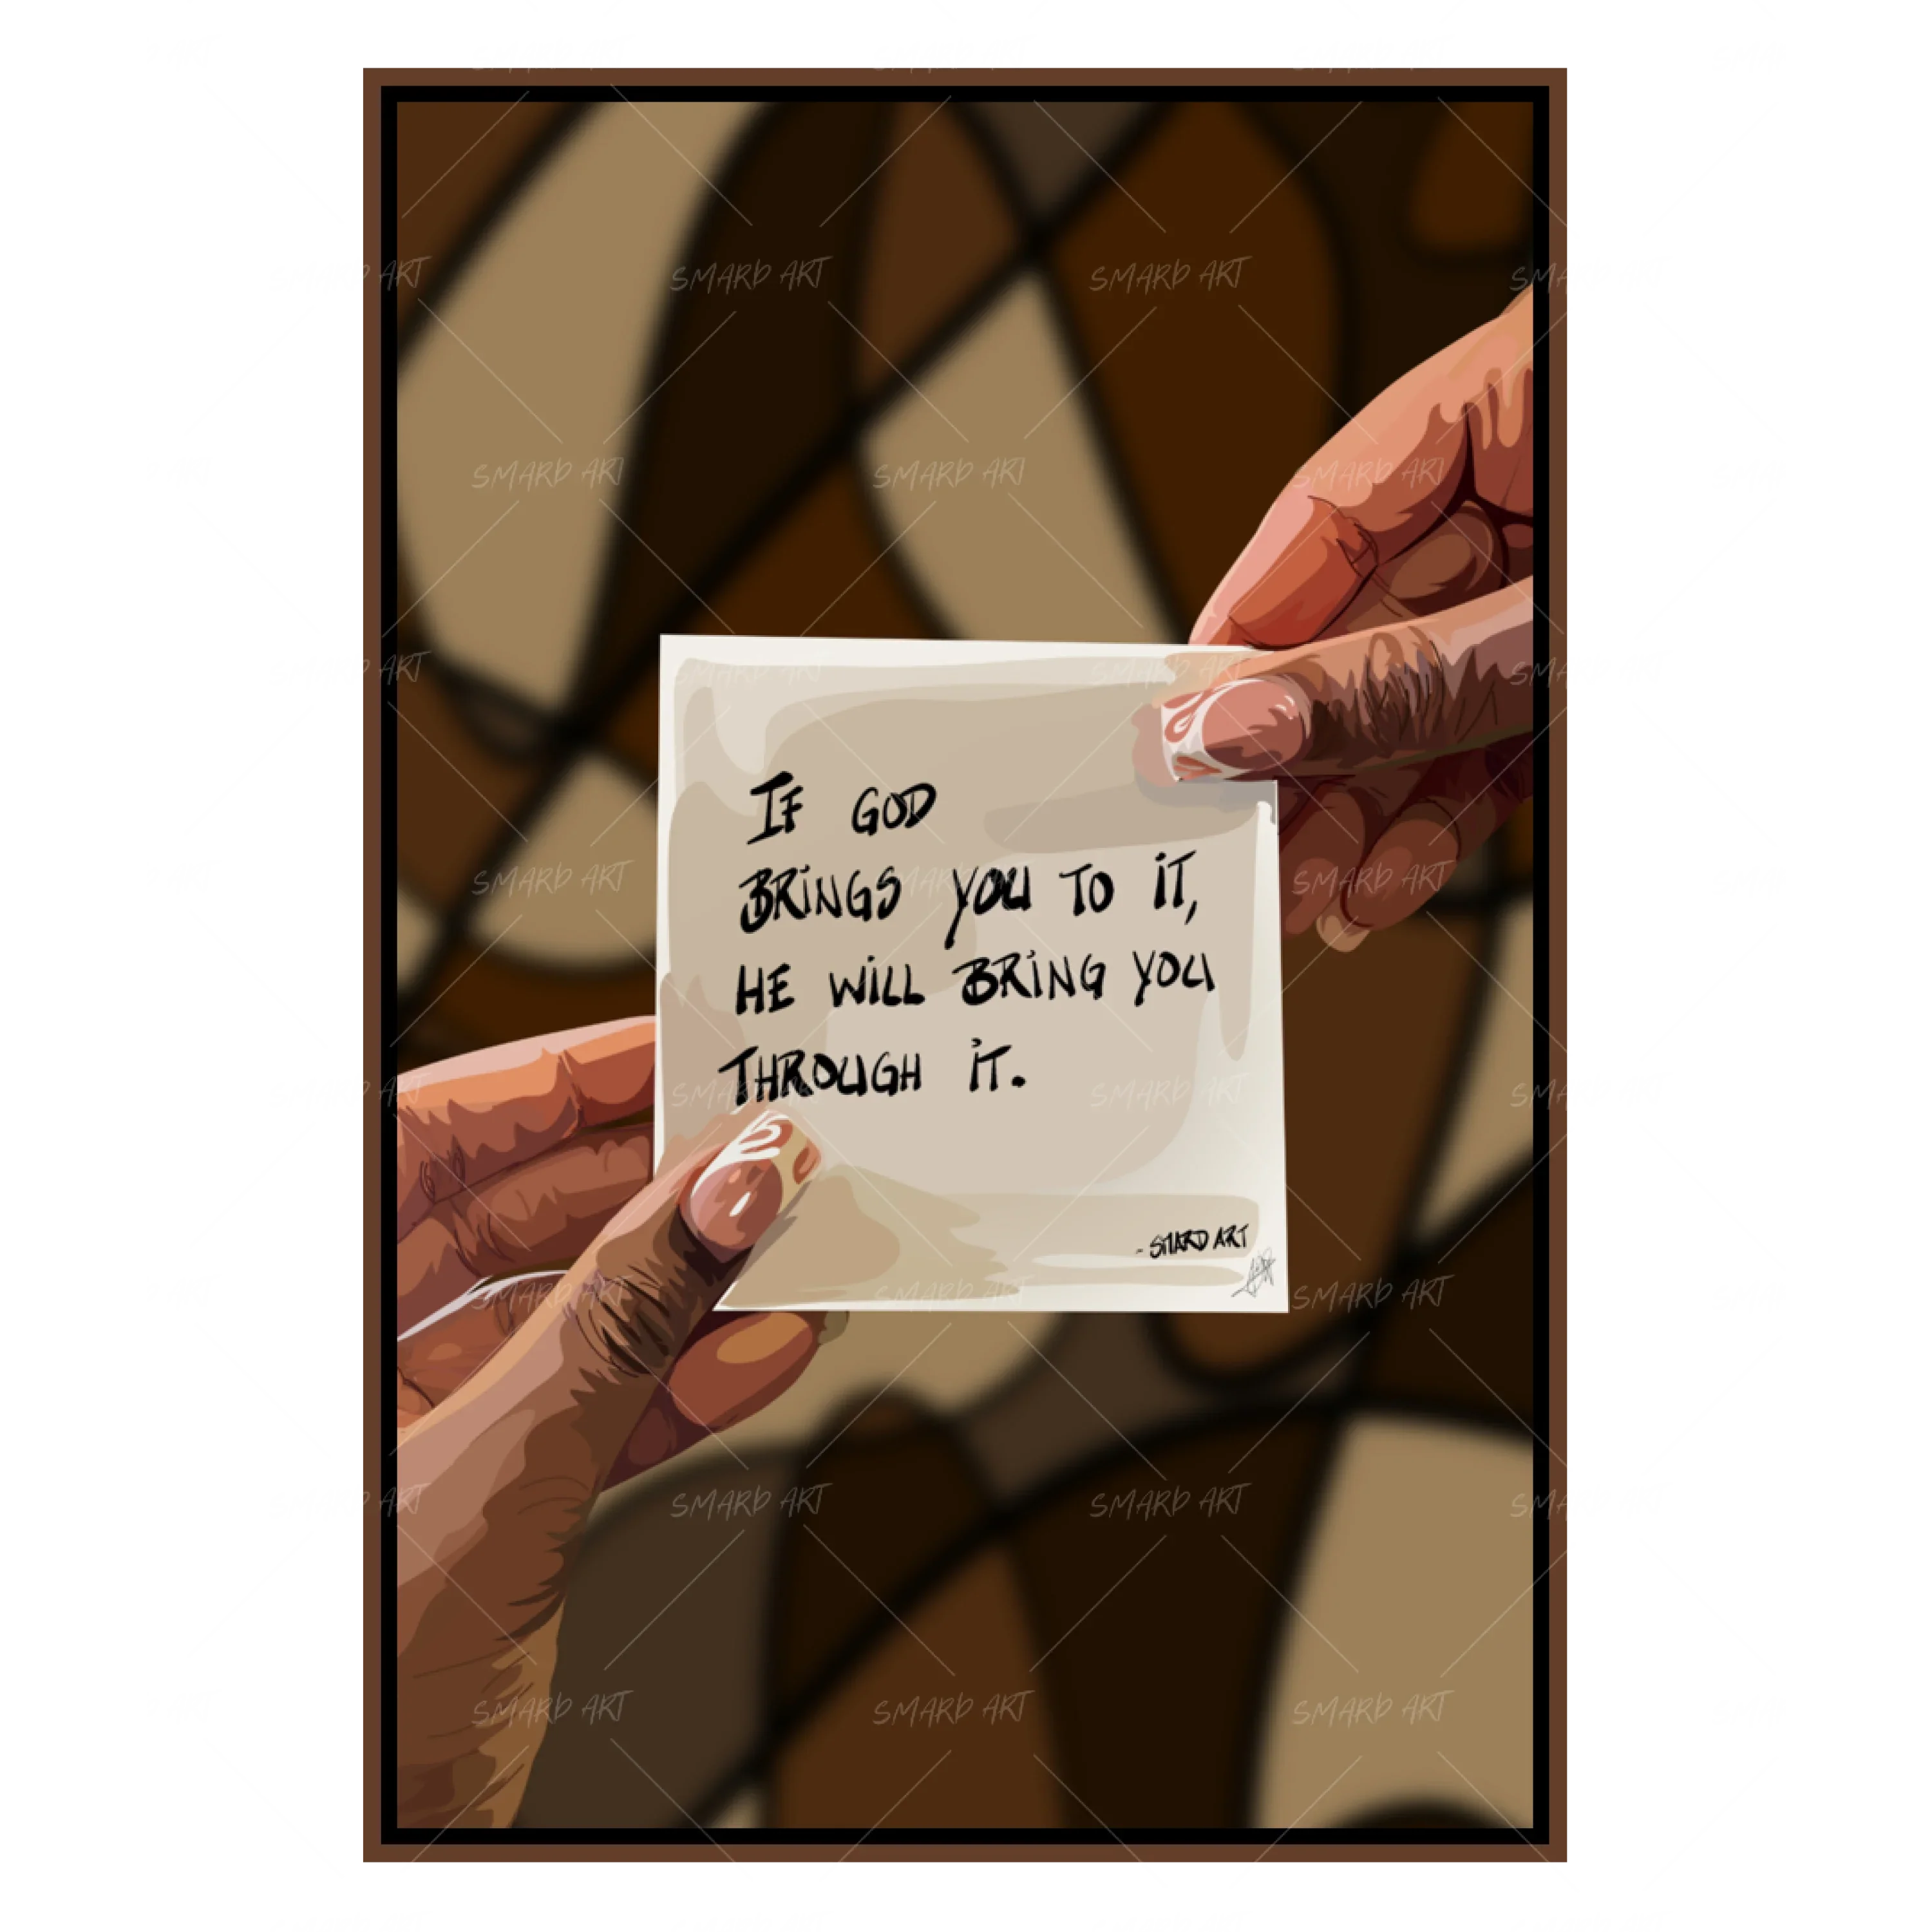 IF GOD
BRINGS YOU TO IT,
HE WILL BRING YOU
THROUGH IT.
- SMARD ART
SMARD ART